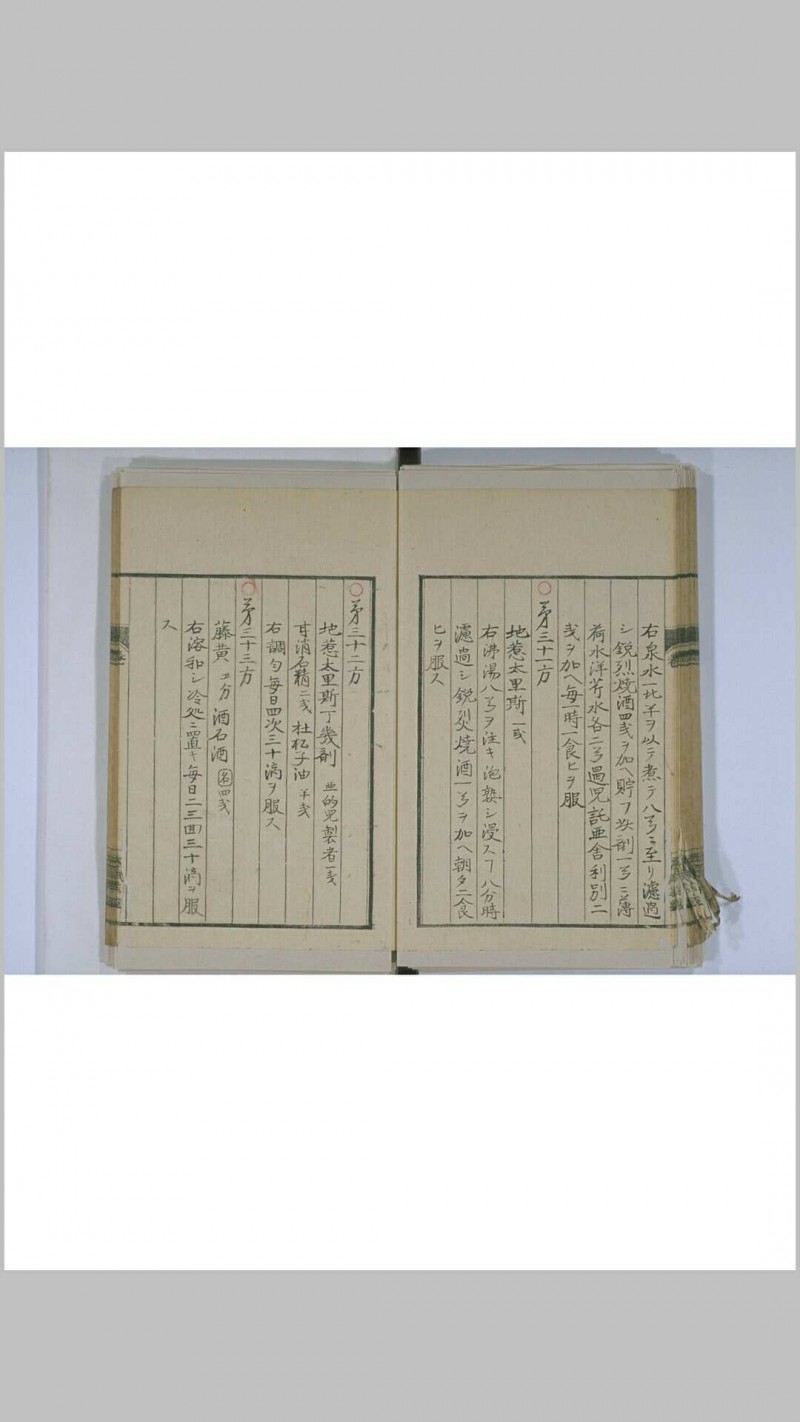 右泉水一比半ヲ以テ煮テ八弓ニ至リ濾過
シ鋭烈焼酒四戔ヲ加ヘ貯フ此剤一弓ニ薄
荷水洋芥水各二弓過児託亜舎利別二
戔ヲ加ヘ毎一時一食ヒヲ服
○第三十一方
地惹太里斯一戔
右沸湯八弓ヲ注キ泡熟シ浸スヿ八分時
濾過シ鋭烈焼酒一弓ヲ加ヘ朝夕二食
ヒヲ服ス
○第三十二方
地惹太里斯丁幾剤 亜的児製者一戔
甘消石精二戔 杜松子油半戔
右調匀毎日四次三十滴ヲ服ス
○第三十三方
藤黄 酒石酒 名四戔
右溶和シ冷処ニ置キ毎日二三回三十滴ヲ服
ス